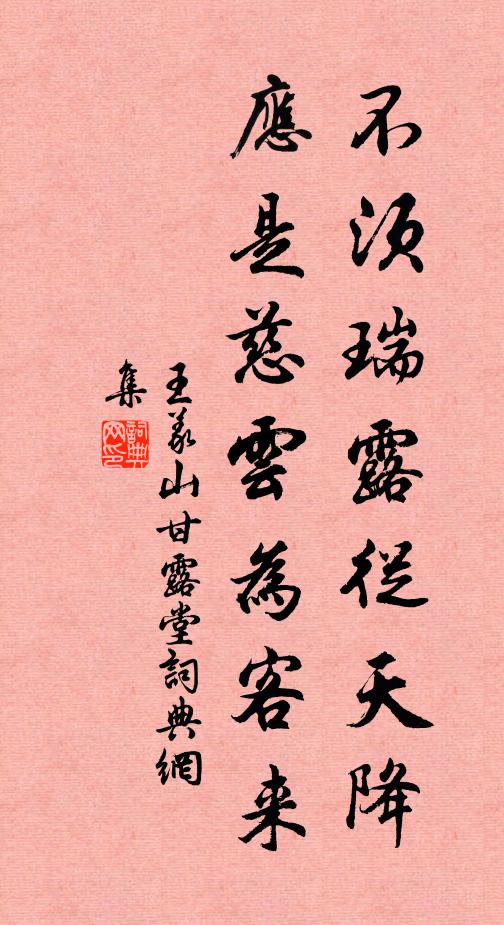 不須瑞露從天降
應是慈雲為客来
王義山甘露堂詞典網
集
詞典
网印